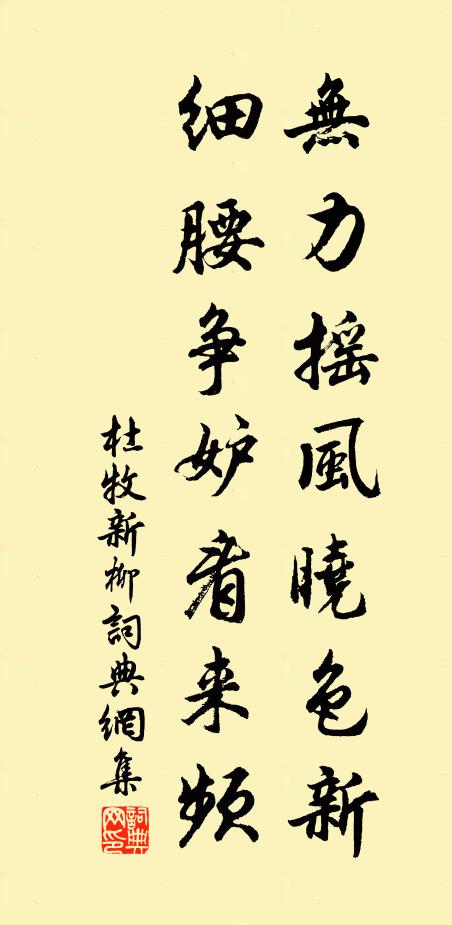 無力摇風曉色新
細腰争妒看来頻
杜牧新柳詞典網集
詞典网印